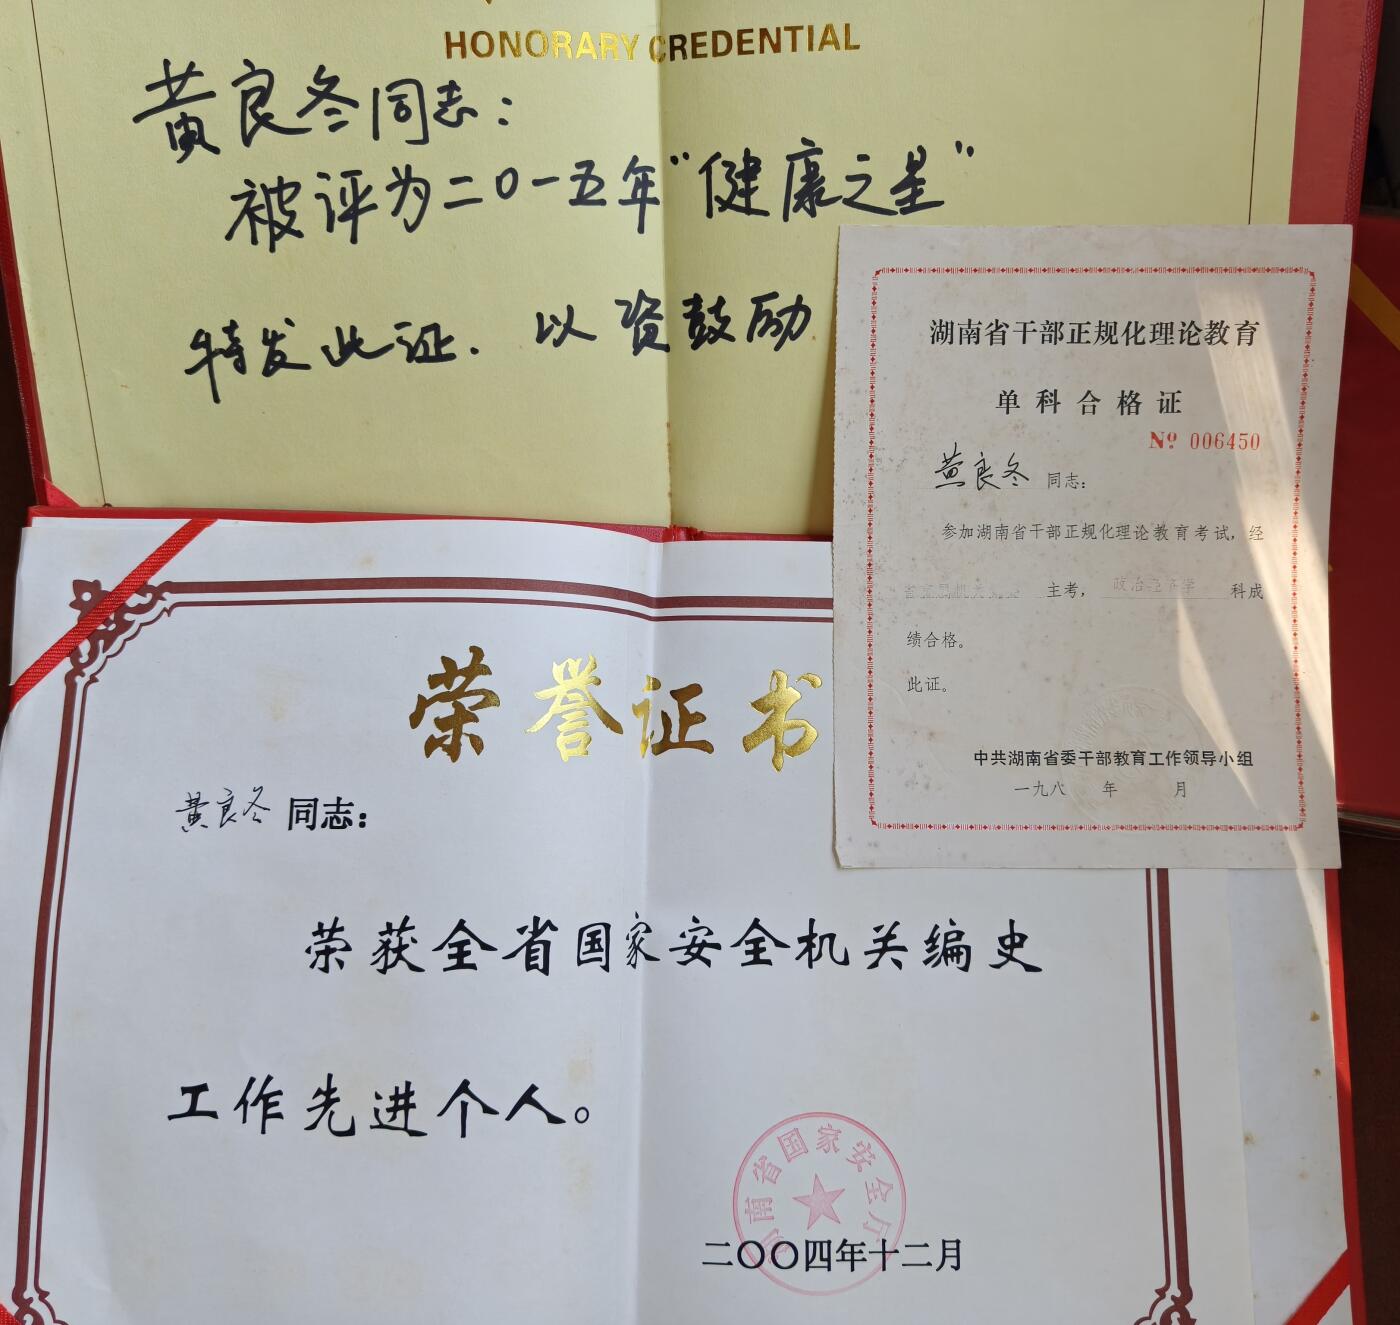 HONORARY CREDENTIAL
黄良冬同志：
被评为二〇一五年“健康之星”
特发此证. 以资鼓励
湖南省干部正规化理论教育
单科合格证
№ 006450
黄良冬 同志：
参加湖南省干部正规化理论教育考试，经
主考， 政治经济学 科成
绩合格。
此证。
中共湖南省委干部教育工作领导小组
一九八 年 月
荣誉证书
黄良冬 同志：
荣获全省国家安全机关编史
工作先进个人。
湖南省国家安全厅
二〇〇四年十二月